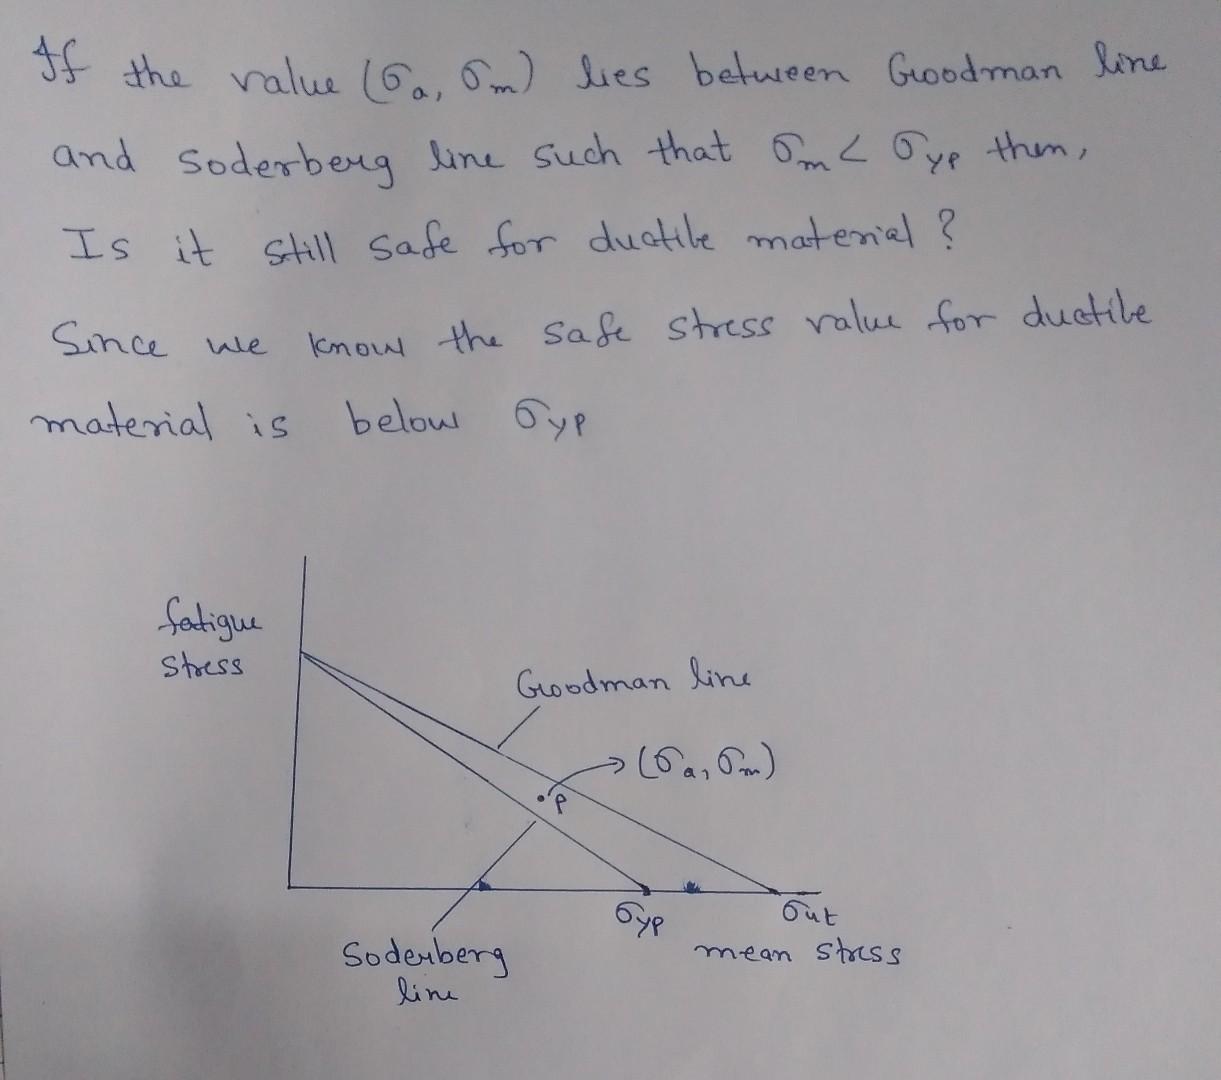 If the value (σa, σm) lies between Goodman line
and Soderberg line such that σm < σyp then,
Is it still safe for ductile material ?
Since we know the safe stress value for ductile
material is below σyp
fatigue
stress
Goodman line
(σa, σm)
P
σyp
σut
mean stress
Soderberg
line